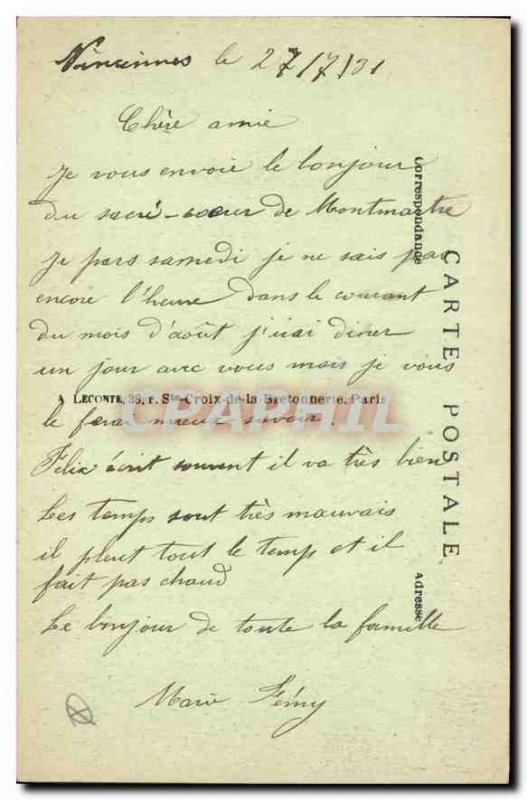 Vincennes le 27/7/31
Chère amie
Je vous envoie le bonjour
du sacré-coeur de Montmatre
Je pars samedi je ne sais pas
encore l'heure dans le courant
du mois d'août j'irai diner
un jour avec vous mais je vous
A LECONTE, 38, r. Ste-Croix-de-la-Bretonnerie, Paris
CPAPHIL
le ferai mieux savoir.
Felix écrit souvent il va très bien
Les temps sont très mauvais
il pleut tout le temps et il
fait pas chaud
Le bonjour de toute la famille
Marie
CARTE POSTALE
Correspondance
Adresse